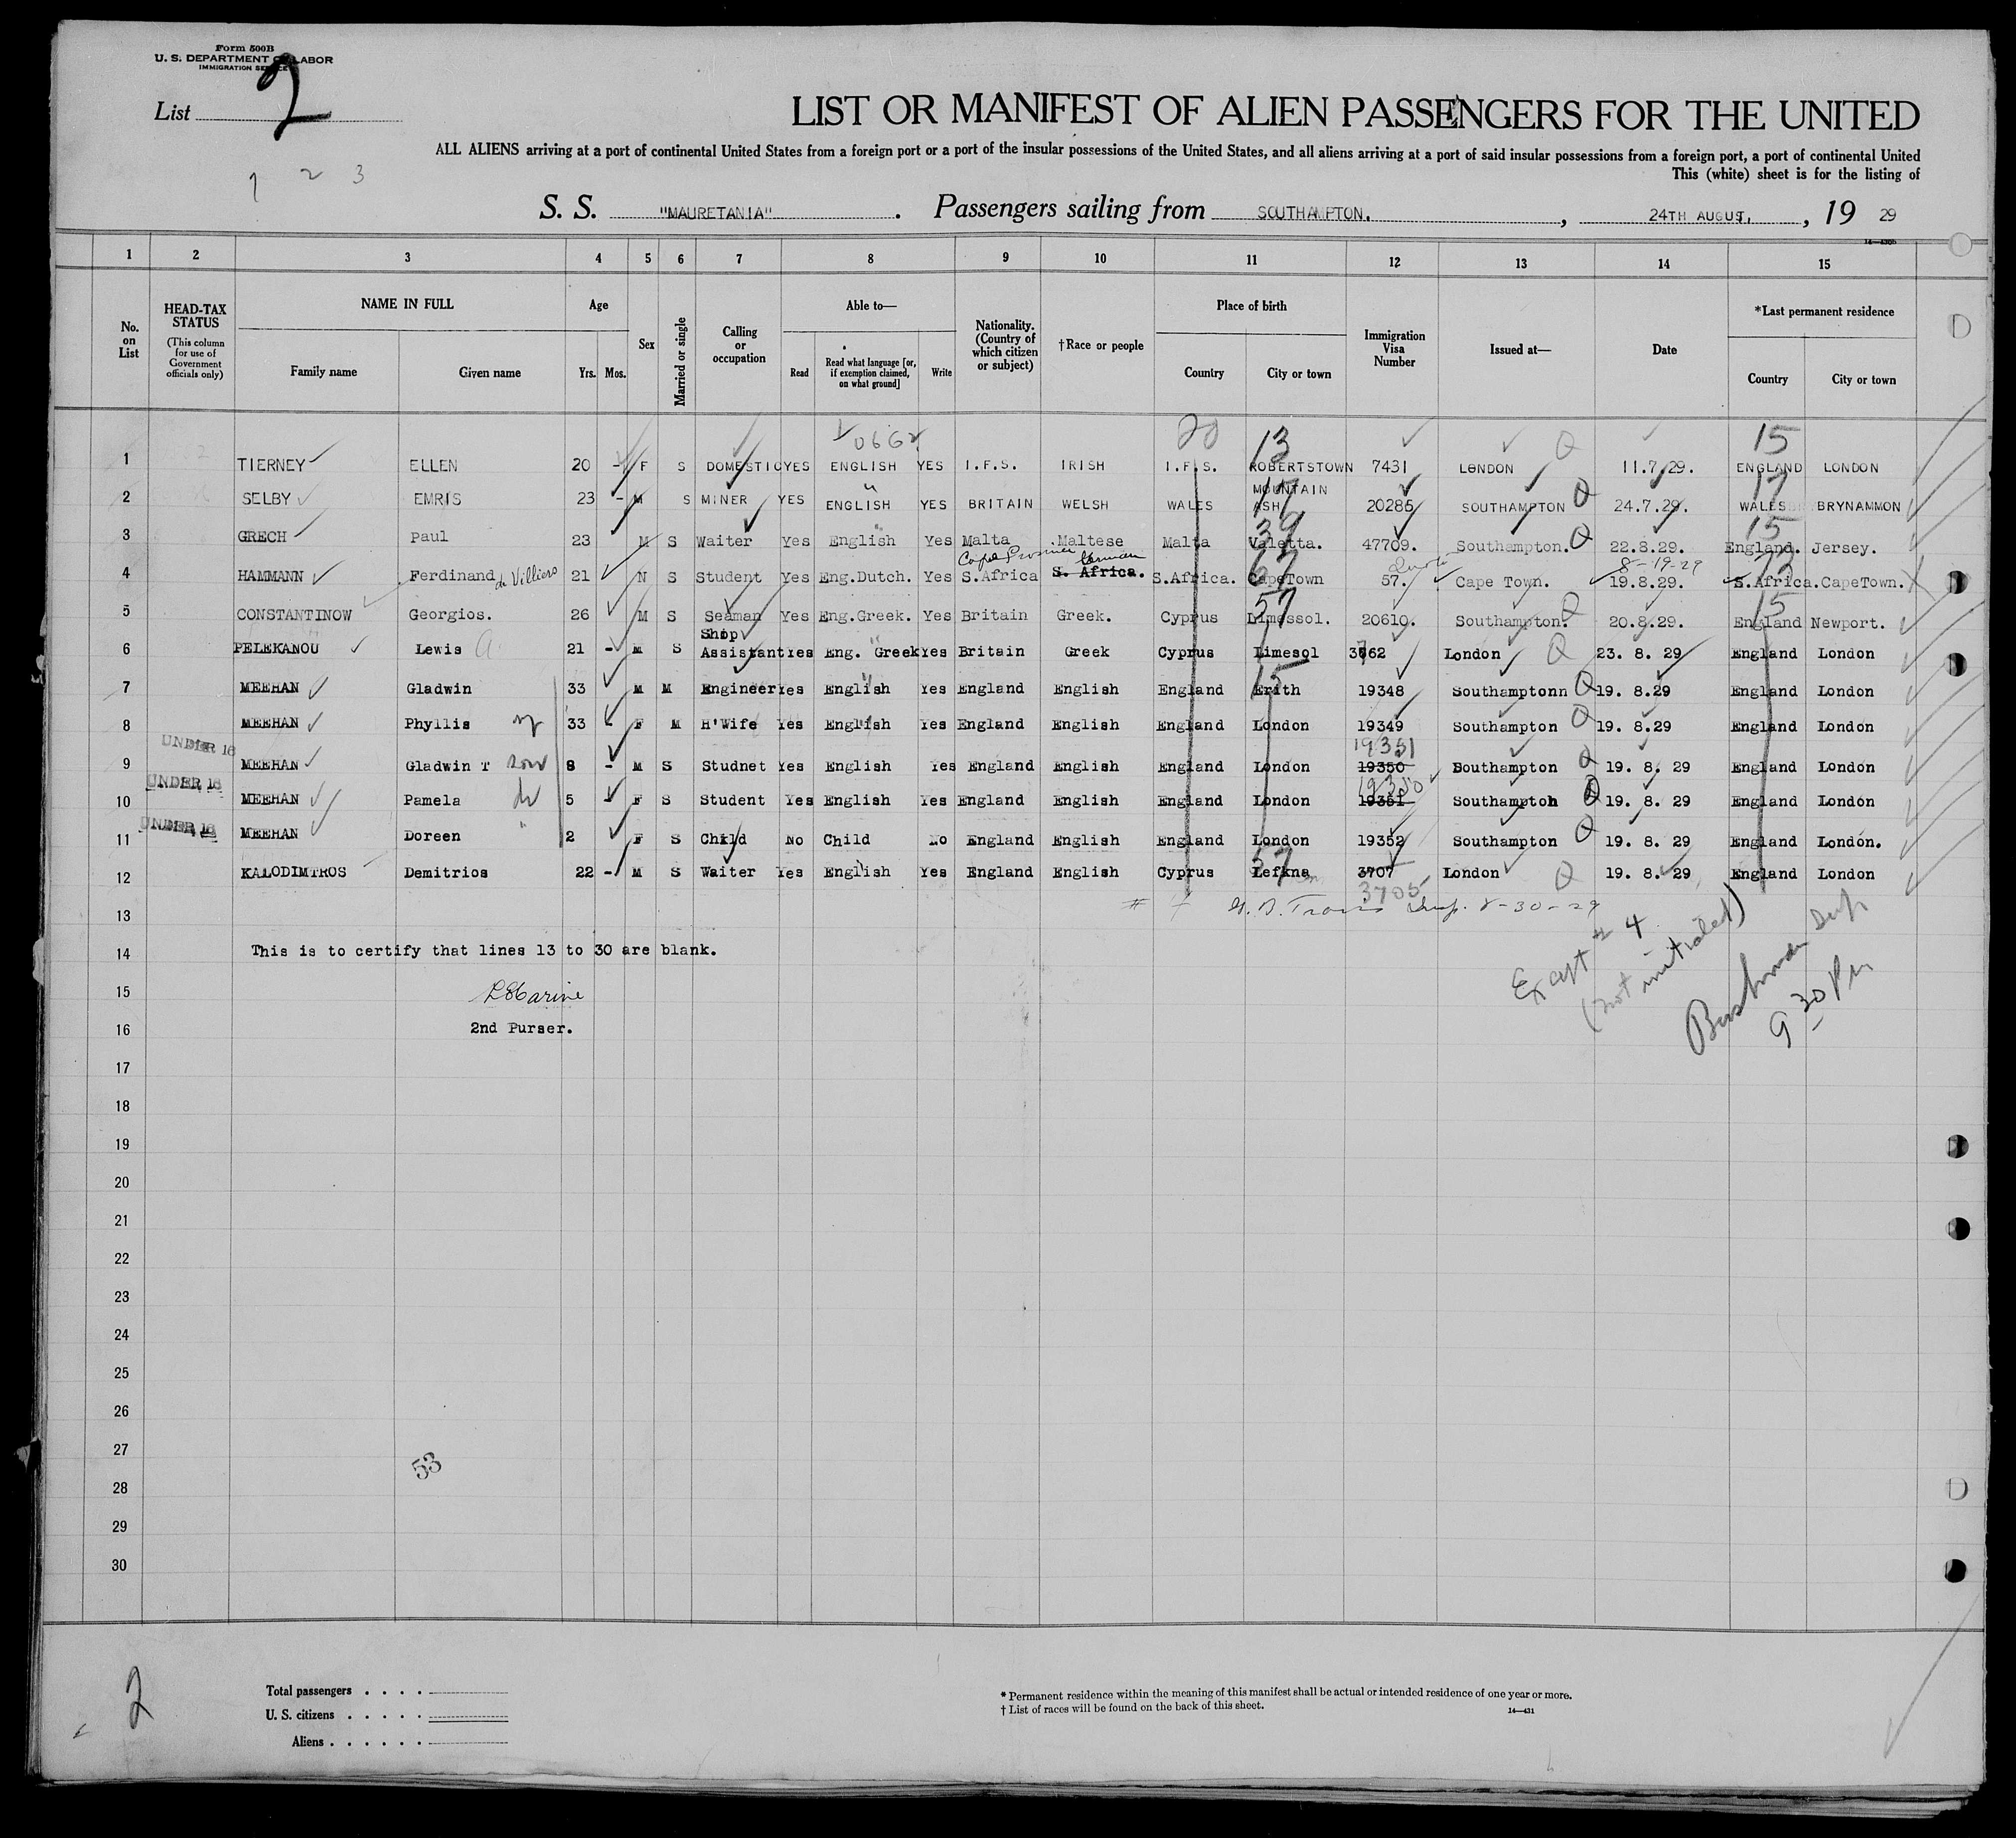 Form 500B
U. S. DEPARTMENT OF LABOR
IMMIGRATION SERVICE
List 2
1 2 3
LIST OR MANIFEST OF ALIEN PASSENGERS FOR THE UNITED
ALL ALIENS arriving at a port of continental United States from a foreign port or a port of the insular possessions of the United States, and all aliens arriving at a port of said insular possessions from a foreign port, a port of continental United
This (white) sheet is for the listing of
S. S. "MAURETANIA". Passengers sailing from SOUTHAMPTON., 24TH AUGUST., 19 29
1 2 3 4 5 6 7 8 9 10 11 12 13 14 15
No. on List
HEAD-TAX STATUS (This column for use of Government officials only)
NAME IN FULL Family name Given name
Age Yrs. Mos.
Sex
Married or single
Calling or occupation
Able to— Read Read what language [or, if exemption claimed, on what ground] Write
Nationality. (Country of which citizen or subject)
†Race or people
Place of birth Country City or town
Immigration Visa Number
Issued at—
Date
*Last permanent residence Country City or town
0662 20 13 15
1 TIERNEY ELLEN 20 - F S DOMESTIC YES ENGLISH YES I.F.S. IRISH I.F.S. ROBERTSTOWN 7431 LONDON 11.7.29. ENGLAND LONDON
2 SELBY EMRIS 23 - M S MINER YES ENGLISH YES BRITAIN WELSH WALES MOUNTAIN ASH 17 20285 SOUTHAMPTON 24.7.29. WALES 17 BRYNAMMON
3 GRECH Paul 23 M S Waiter Yes English Yes Malta Maltese Malta Valetta. 39 47709. Southampton. 22.8.29. England. 15 Jersey.
4 HAMMANN Ferdinand de Villiers 21 N S Student Yes Eng.Dutch. Yes Cape Province S.Africa German S. Africa. S.Africa. CapeTown 67 57. Cape Town. 8-19-29 19.8.29. S.Africa. 72 CapeTown.
5 CONSTANTINOW Georgios. 26 M S Seaman Yes Eng.Greek. Yes Britain Greek. Cyprus Limessol. 57 20610. Southampton. 20.8.29. England 15 Newport.
6 PELEKANOU Lewis 21 - M S Ship Assistant Yes Eng. Greek Yes Britain Greek Cyprus Limesol 3762 London 23. 8. 29 England London
7 MEEHAN Gladwin 33 M M Engineer Yes English Yes England English England Erith 15 19348 Southamptonn 19. 8.29 England London
8 MEEHAN Phyllis 33 - F M H'Wife Yes English Yes England English England London 19349 Southampton 19. 8.29 England London
UNDER 16
9 MEEHAN Gladwin T son 8 - M S Studnet Yes English Yes England English England London 19351 19350 Southampton 19. 8. 29 England London
UNDER 16
10 MEEHAN Pamela 5 - F S Student Yes English Yes England English England London 19350 19351 Southampton 19. 8. 29 England London
UNDER 16
11 MEEHAN Doreen " 2 F S Child No Child No England English England London 19352 Southampton 19. 8. 29 England London.
12 KALODIMTROS Demitrios 22 - M S Waiter Yes English Yes England English Cyprus Lefkna 57 3707 3705 London 19. 8. 29 England London
13 # 4 Insp. 8-30-29
14 This is to certify that lines 13 to 30 are blank.
Except # 4
(not initialed)
15
16 2nd Purser.
9 30 PM
17
18
19
20
21
22
23
24
25
26
27
53
28
29
30
2
Total passengers . . . .
U. S. citizens . . . . .
Aliens . . . . . .
* Permanent residence within the meaning of this manifest shall be actual or intended residence of one year or more.
† List of races will be found on the back of this sheet.
14—431